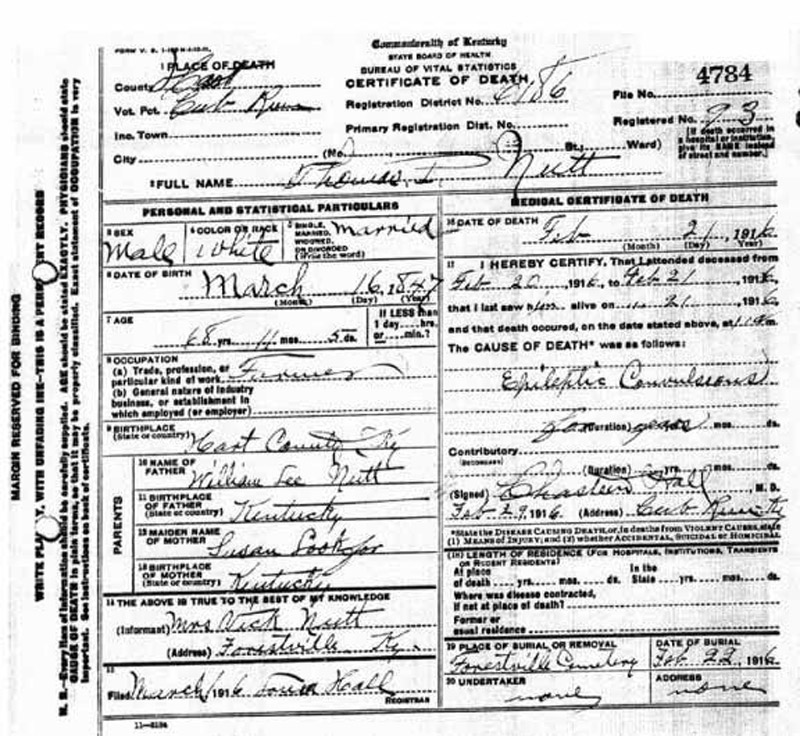 Commonwealth of Kentucky
STATE BOARD OF HEALTH
BUREAU OF VITAL STATISTICS
CERTIFICATE OF DEATH
1 PLACE OF DEATH
County Hart
Vot. Pct. Cub Run
Inc. Town
City
Registration District No. 6186
Primary Registration Dist. No.
(No. St., Ward)
File No. 4784
Registered No. 93
[If death occurred in a hospital or institution, give its NAME instead of street and number.]
2 FULL NAME Thomas L. Nutt
PERSONAL AND STATISTICAL PARTICULARS
3 SEX Male
4 COLOR OR RACE White
5 SINGLE, MARRIED, WIDOWED, OR DIVORCED (Write the word) Married
6 DATE OF BIRTH March 16, 1847
(Month) (Day) (Year)
7 AGE 68 yrs. 11 mos. 5 ds.
If LESS than 1 day....hrs. or....min.?
8 OCCUPATION
(a) Trade, profession, or particular kind of work Farmer
(b) General nature of industry business, or establishment in which employed (or employer)
9 BIRTHPLACE (State or country) Hart County Ky
PARENTS
10 NAME OF FATHER William Lee Nutt
11 BIRTHPLACE OF FATHER (State or country) Kentucky
12 MAIDEN NAME OF MOTHER Susan
13 BIRTHPLACE OF MOTHER (State or country) Kentucky
14 THE ABOVE IS TRUE TO THE BEST OF MY KNOWLEDGE
(Informant) Mrs Vick Nutt
(Address) Forestville Ky.
15
Filed March 1916 Hall
REGISTRAR
11-3184
MEDICAL CERTIFICATE OF DEATH
16 DATE OF DEATH Feb 21, 1916
(Month) (Day) (Year)
17 I HEREBY CERTIFY, That I attended deceased from
Feb 20, 1916, to Feb 21, 1916,
that I last saw him alive on 21, 1916,
and that death occured, on the date stated above, at m.
The CAUSE OF DEATH* was as follows:
Epileptic Convulsions
for (Duration) years mos. ds.
Contributory
(SECONDARY)
(Duration) yrs. mos. ds.
(Signed) Chasteen Hall M. D.
Feb 29, 1916 (Address) Cub Run Ky
*State the DISEASE CAUSING DEATH, or, in deaths from VIOLENT CAUSES, state
(1) MEANS OF INJURY; and (2) whether ACCIDENTAL, SUICIDAL or HOMICIDAL
18 LENGTH OF RESIDENCE (FOR HOSPITALS, INSTITUTIONS, TRANSIENTS OR RECENT RESIDENTS)
At place of death yrs. mos. ds. In the State yrs. mos. ds.
Where was disease contracted,
If not at place of death?
Former or
usual residence
19 PLACE OF BURIAL OR REMOVAL Forestville Cemetery
DATE OF BURIAL Feb 22, 1916
20 UNDERTAKER none
ADDRESS none
MARGIN RESERVED FOR BINDING
WRITE PLAINLY, WITH UNFADING INK—THIS IS A PERMANENT RECORD
N. B.—Every item of information should be carefully supplied. AGE should be stated EXACTLY. PHYSICIANS should state
CAUSE OF DEATH in plain terms, so that it may be properly classified. Exact statement of OCCUPATION is very
important. See instructions on back of certificate.